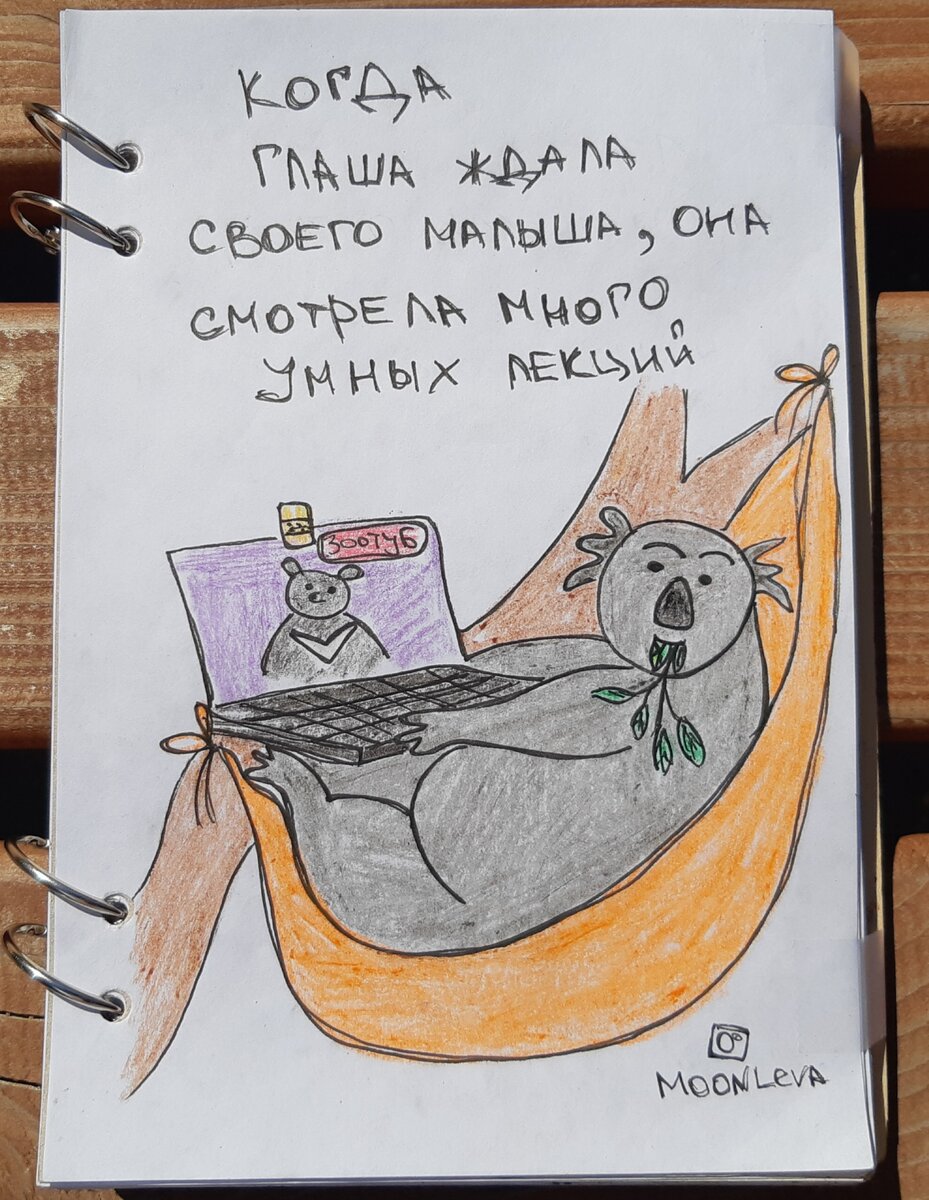 КОГДА
ГЛАША ЖДАЛА
СВОЕГО МАЛЫША, ОНА
СМОТРЕЛА МНОГО
УМНЫХ ЛЕКЦИЙ
ЗООТУБ
MOONLeVA